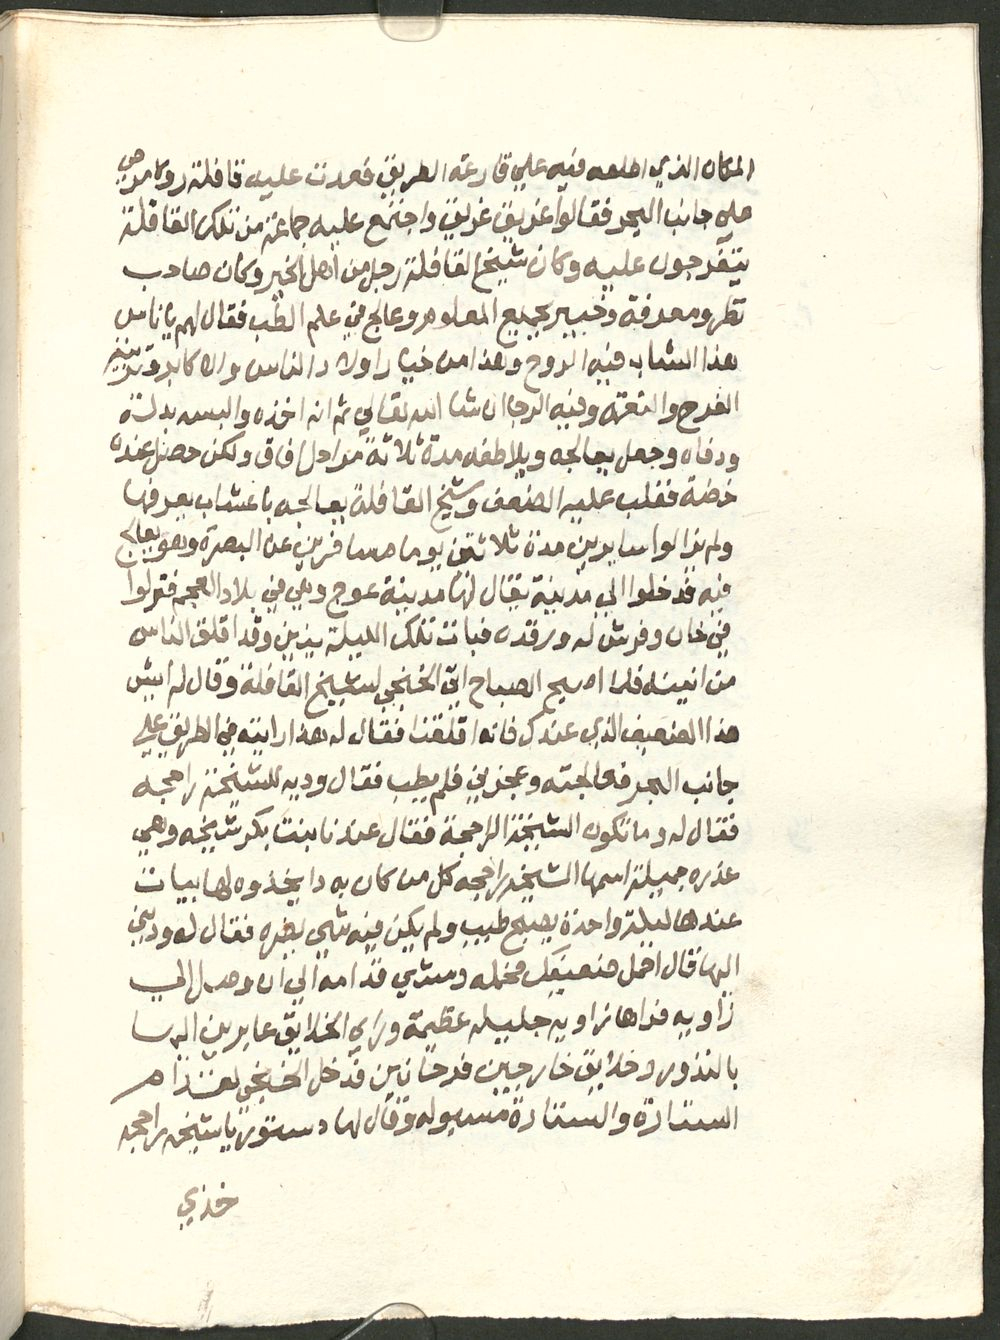 المكان الذي اطلعه فيه علي قارعة الطريق فعدت عليه قافلة وكامرهي
علي جانب البحر فقالوا غريق غريق واجتمع عليه جماعة من تلك القافلة
يتفرجون عليه وكان شيخ القافلة رجل من اهل الخير وكان صاحب
نظر ومعرفة وخبير بجميع المعلوم وعالج في علم الطب فقال لهم يا ناس
هذا الشاب فيه الروح وهذا من خيار اولاد الناس والاكابر وتربية
الفرح والنعمة وفيه الرجا ان شا الله تعالي ثم انه اخذه والبسه بدلة
ودفاه وجعل يعالجه ويلاطفه مدة ثلاثة مراحل افاق ولكن حصل عنده
خضة فغلب عليه الضعف وشيخ القافلة يعالجه باعشاب يعرفها
ولم يزالوا سايرين مدة ثلاثين يوما مسافرين عن البصرة وهو يعالج
فيه فدخلوا الي مدينة يقال لها مدينة عوج وهي في بلاد العجم فنزلوا
في خان وفرش له ورقده فبات تلك الليلة ينين وقد اقلق الناس
من انينه فلما اصبح الصباح اتي الخنجي لشيخ القافلة وقال له ايش
هذا الضعيف الذي عندك فانه اقلقنا فقال له هذا رايته في الطريق علي
جانب البحر فعالجته وعجزني فلم يطيب فقال وديه للشيخة راجحه
فقال له وما تكون الشيخة الراجحة فقال عندنا بنت بكر شيخه وهي
عذره جميلة اسمها الشيخه راجحه كل من كان به دا يخذوه لها بيبات
عندها ليلة واحدة يصبح طيب ولم يكن فيه شي يضره فقال له وديني
اليها قال احمل ضعيفك فحمله ومشي قدامه الي ان وصل الي
زاويه فراها زاويه جليله عظيمة وراي الخلايق عابرين اليها
بالنذور وخلايق خارجين فرحانين فدخل الخنجي لقدام
الستارة والستارة مسبوله وقال لها دستور يا شيخه راجحه
خذي